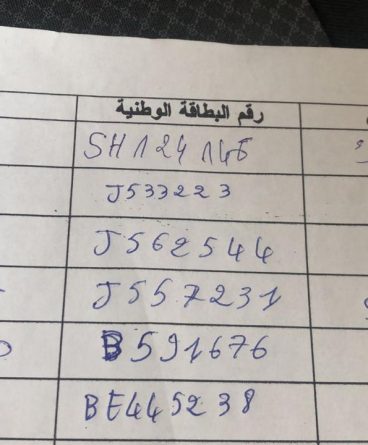 رقم البطاقة الوطنية
SH124146
J533223
J562544
J557231
B591676
BE445238